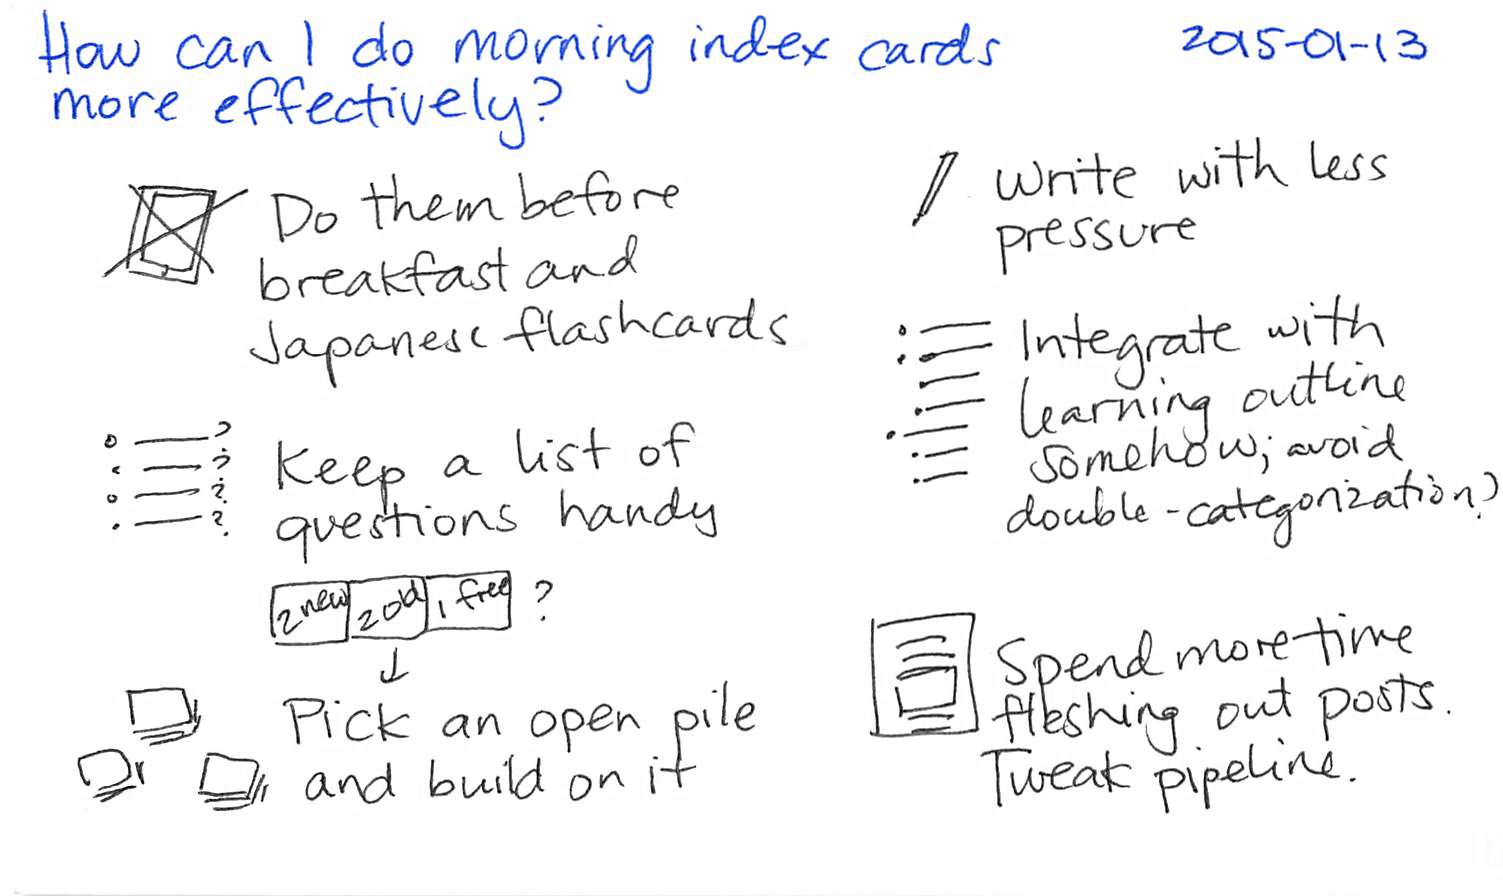 How can I do morning index cards
more effectively?
2015-01-13
Do them before
breakfast and
Japanese flashcards
? 
? 
? 
?
Keep a list of
questions handy
2 new 2 old 1 free ?
Pick an open pile
and build on it
Write with less
pressure
Integrate with
learning outline
somehow; avoid
double-categorization?
Spend more time
fleshing out posts.
Tweak pipeline.